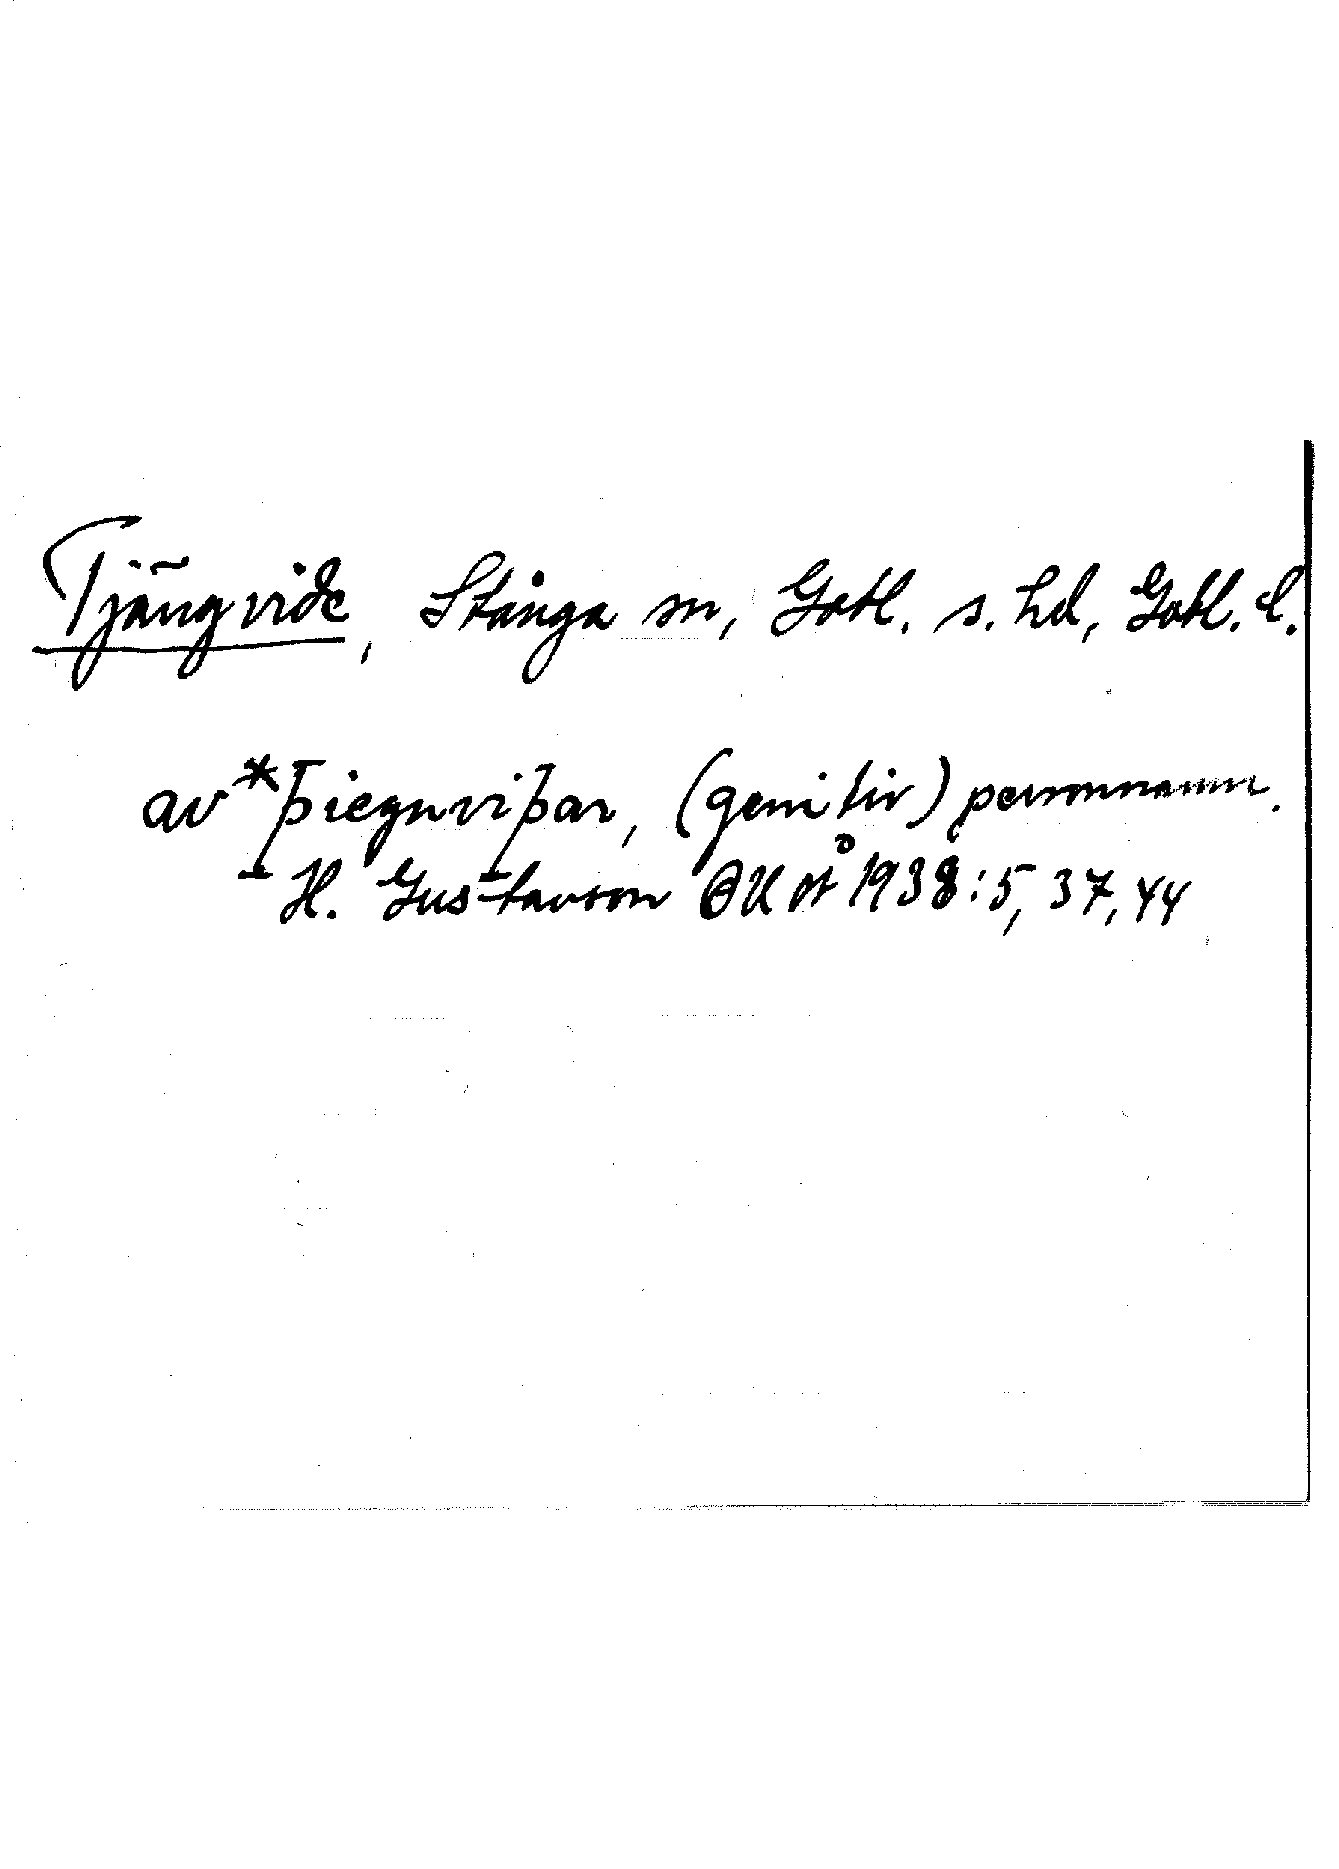 Tjängvide, Stånga sn, Gotl. s. hd, Gotl. l.
av *þiegnviþar, (genitiv) personnamn.
H. Gustavson 1938:5, 37, 44